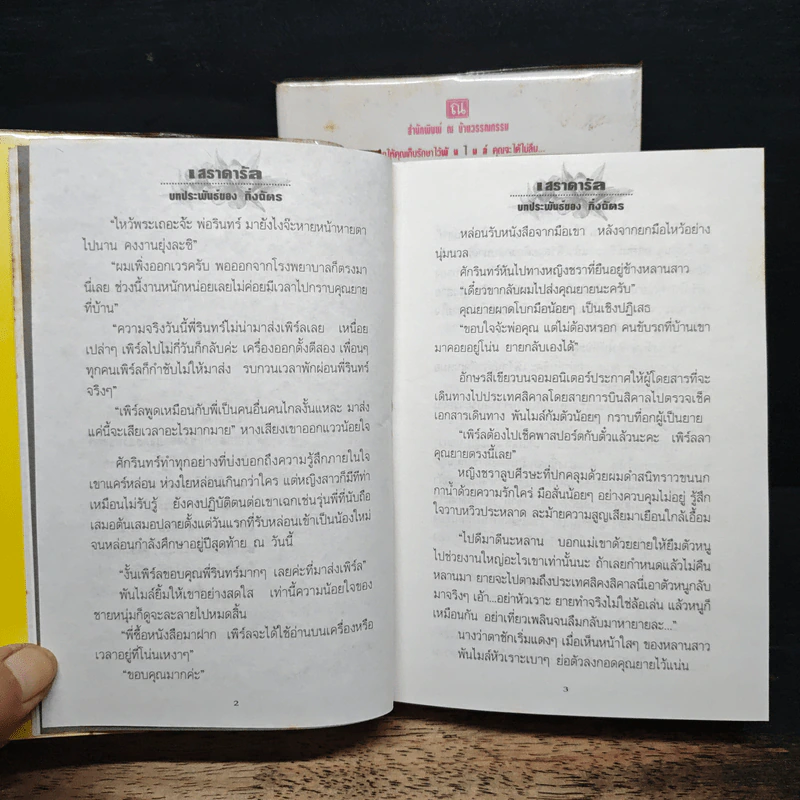 ณ
สำนักพิมพ์ ณ บ้านวรรณกรรม
ให้คุณเก็บรักษาไว้พันไมล์ คุณจะได้ไม่ลืม...
เสราดารัล
บทประพันธ์ของ กิ่งฉัตร
"ไหว้พระเถอะจ้ะ พ่อรินทร์ มายังไงจ๊ะหายหน้าหายตา
ไปนาน คงงานยุ่งละซิ"
"ผมเพิ่งออกเวรครับ พอออกจากโรงพยาบาลก็ตรงมา
นี่เลย ช่วงนี้งานหนักหน่อยเลยไม่ค่อยมีเวลาไปกราบคุณยาย
ที่บ้าน"
"ความจริงวันนี้พี่รินทร์ไม่น่ามาส่งเพิร์ลเลย เหนื่อย
เปล่าๆ เพิร์ลไปไม่กี่วันก็กลับค่ะ เครื่องออกตั้งตีสอง เพื่อนๆ
ทุกคนเพิร์ลก็กำชับไม่ให้มาส่ง รบกวนเวลาพักผ่อนพี่รินทร์
จริงๆ"
"เพิร์ลพูดเหมือนกับพี่เป็นคนอื่นคนไกลงั้นแหละ มาส่ง
แค่นี้จะเสียเวลาอะไรมากมาย" หางเสียงเขาออกแววน้อยใจ
ศักรินทร์ทำทุกอย่างที่บ่งบอกถึงความรู้สึกภายในใจ
เขาแคร์หล่อน ห่วงใยหล่อนเกินกว่าใคร แต่หญิงสาวก็มีทีท่า
เหมือนไม่รับรู้ ยังคงปฏิบัติตนต่อเขาเฉกเช่นรุ่นพี่ที่นับถือ
เสมอต้นเสมอปลายตั้งแต่วันแรกที่รับหล่อนเข้าเป็นน้องใหม่
จนหล่อนกำลังศึกษาอยู่ปีสุดท้าย ณ วันนี้
"งั้นเพิร์ลขอบคุณพี่รินทร์มากๆ เลยค่ะที่มาส่งเพิร์ล"
พันไมล์ยิ้มให้เขาอย่างสดใส เท่านี้ความน้อยใจของ
ชายหนุ่มก็ดูจะละลายไปหมดสิ้น
"พี่ซื้อหนังสือมาฝาก เพิร์ลจะได้ใช้อ่านบนเครื่องหรือ
เวลาอยู่ที่โน่นเหงาๆ"
"ขอบคุณมากค่ะ"
2
เสราดารัล
บทประพันธ์ของ กิ่งฉัตร
หล่อนรับหนังสือจากมือเขา หลังจากยกมือไหว้อย่าง
นุ่มนวล
ศักรินทร์หันไปทางหญิงชราที่ยืนอยู่ข้างหลานสาว
"เดี๋ยวขากลับผมไปส่งคุณยายนะครับ"
คุณยายผาดโบกมือน้อยๆ เป็นเชิงปฏิเสธ
"ขอบใจจ้ะพ่อคุณ แต่ไม่ต้องหรอก คนขับรถที่บ้านเขา
มาคอยอยู่โน่น ยายกลับเองได้"
อักษรสีเขียวบนจอมอนิเตอร์ประกาศให้ผู้โดยสารที่จะ
เดินทางไปประเทศสิคาลโดยสายการบินสิคาลไปตรวจเช็ค
เอกสารเดินทาง พันไมล์ก้มตัวน้อยๆ กราบที่อกผู้เป็นยาย
"เพิร์ลต้องไปเช็คพาสปอร์ตกับตั๋วแล้วนะคะ เพิร์ลลา
คุณยายตรงนี้เลย"
หญิงชราลูบศีรษะที่ปกคลุมด้วยผมดำสนิทราวขนนก
กาน้ำด้วยความรักใคร่ มือสั่นน้อยๆ อย่างควบคุมไม่อยู่ รู้สึก
ใจวาบหวิวประหลาด ละม้ายความสูญเสียมาเยือนใกล้เอื้อม
"ไปดีมาดีนะหลาน บอกแม่เขาด้วยยายให้ยืมตัวหนู
ไปช่วยงานใหญ่อะไรเขาเท่านั้นนะ ถ้าเลยกำหนดแล้วไม่คืน
หลานมา ยายจะไปตามถึงประเทศสิคงสิคาลนี่เอาตัวหนูกลับ
มาจริงๆ เอ้า...อย่าหัวเราะ ยายทำจริงไม่ใช่ล้อเล่น แล้วหนูก็
เหมือนกัน อย่าเที่ยวเพลินจนลืมกลับมาหายายละ..."
นางว่าตาชักเริ่มแดงๆ เมื่อเห็นหน้าใสๆ ของหลานสาว
พันไมล์หัวเราะเบาๆ ย่อตัวลงกอดคุณยายไว้แน่น
3